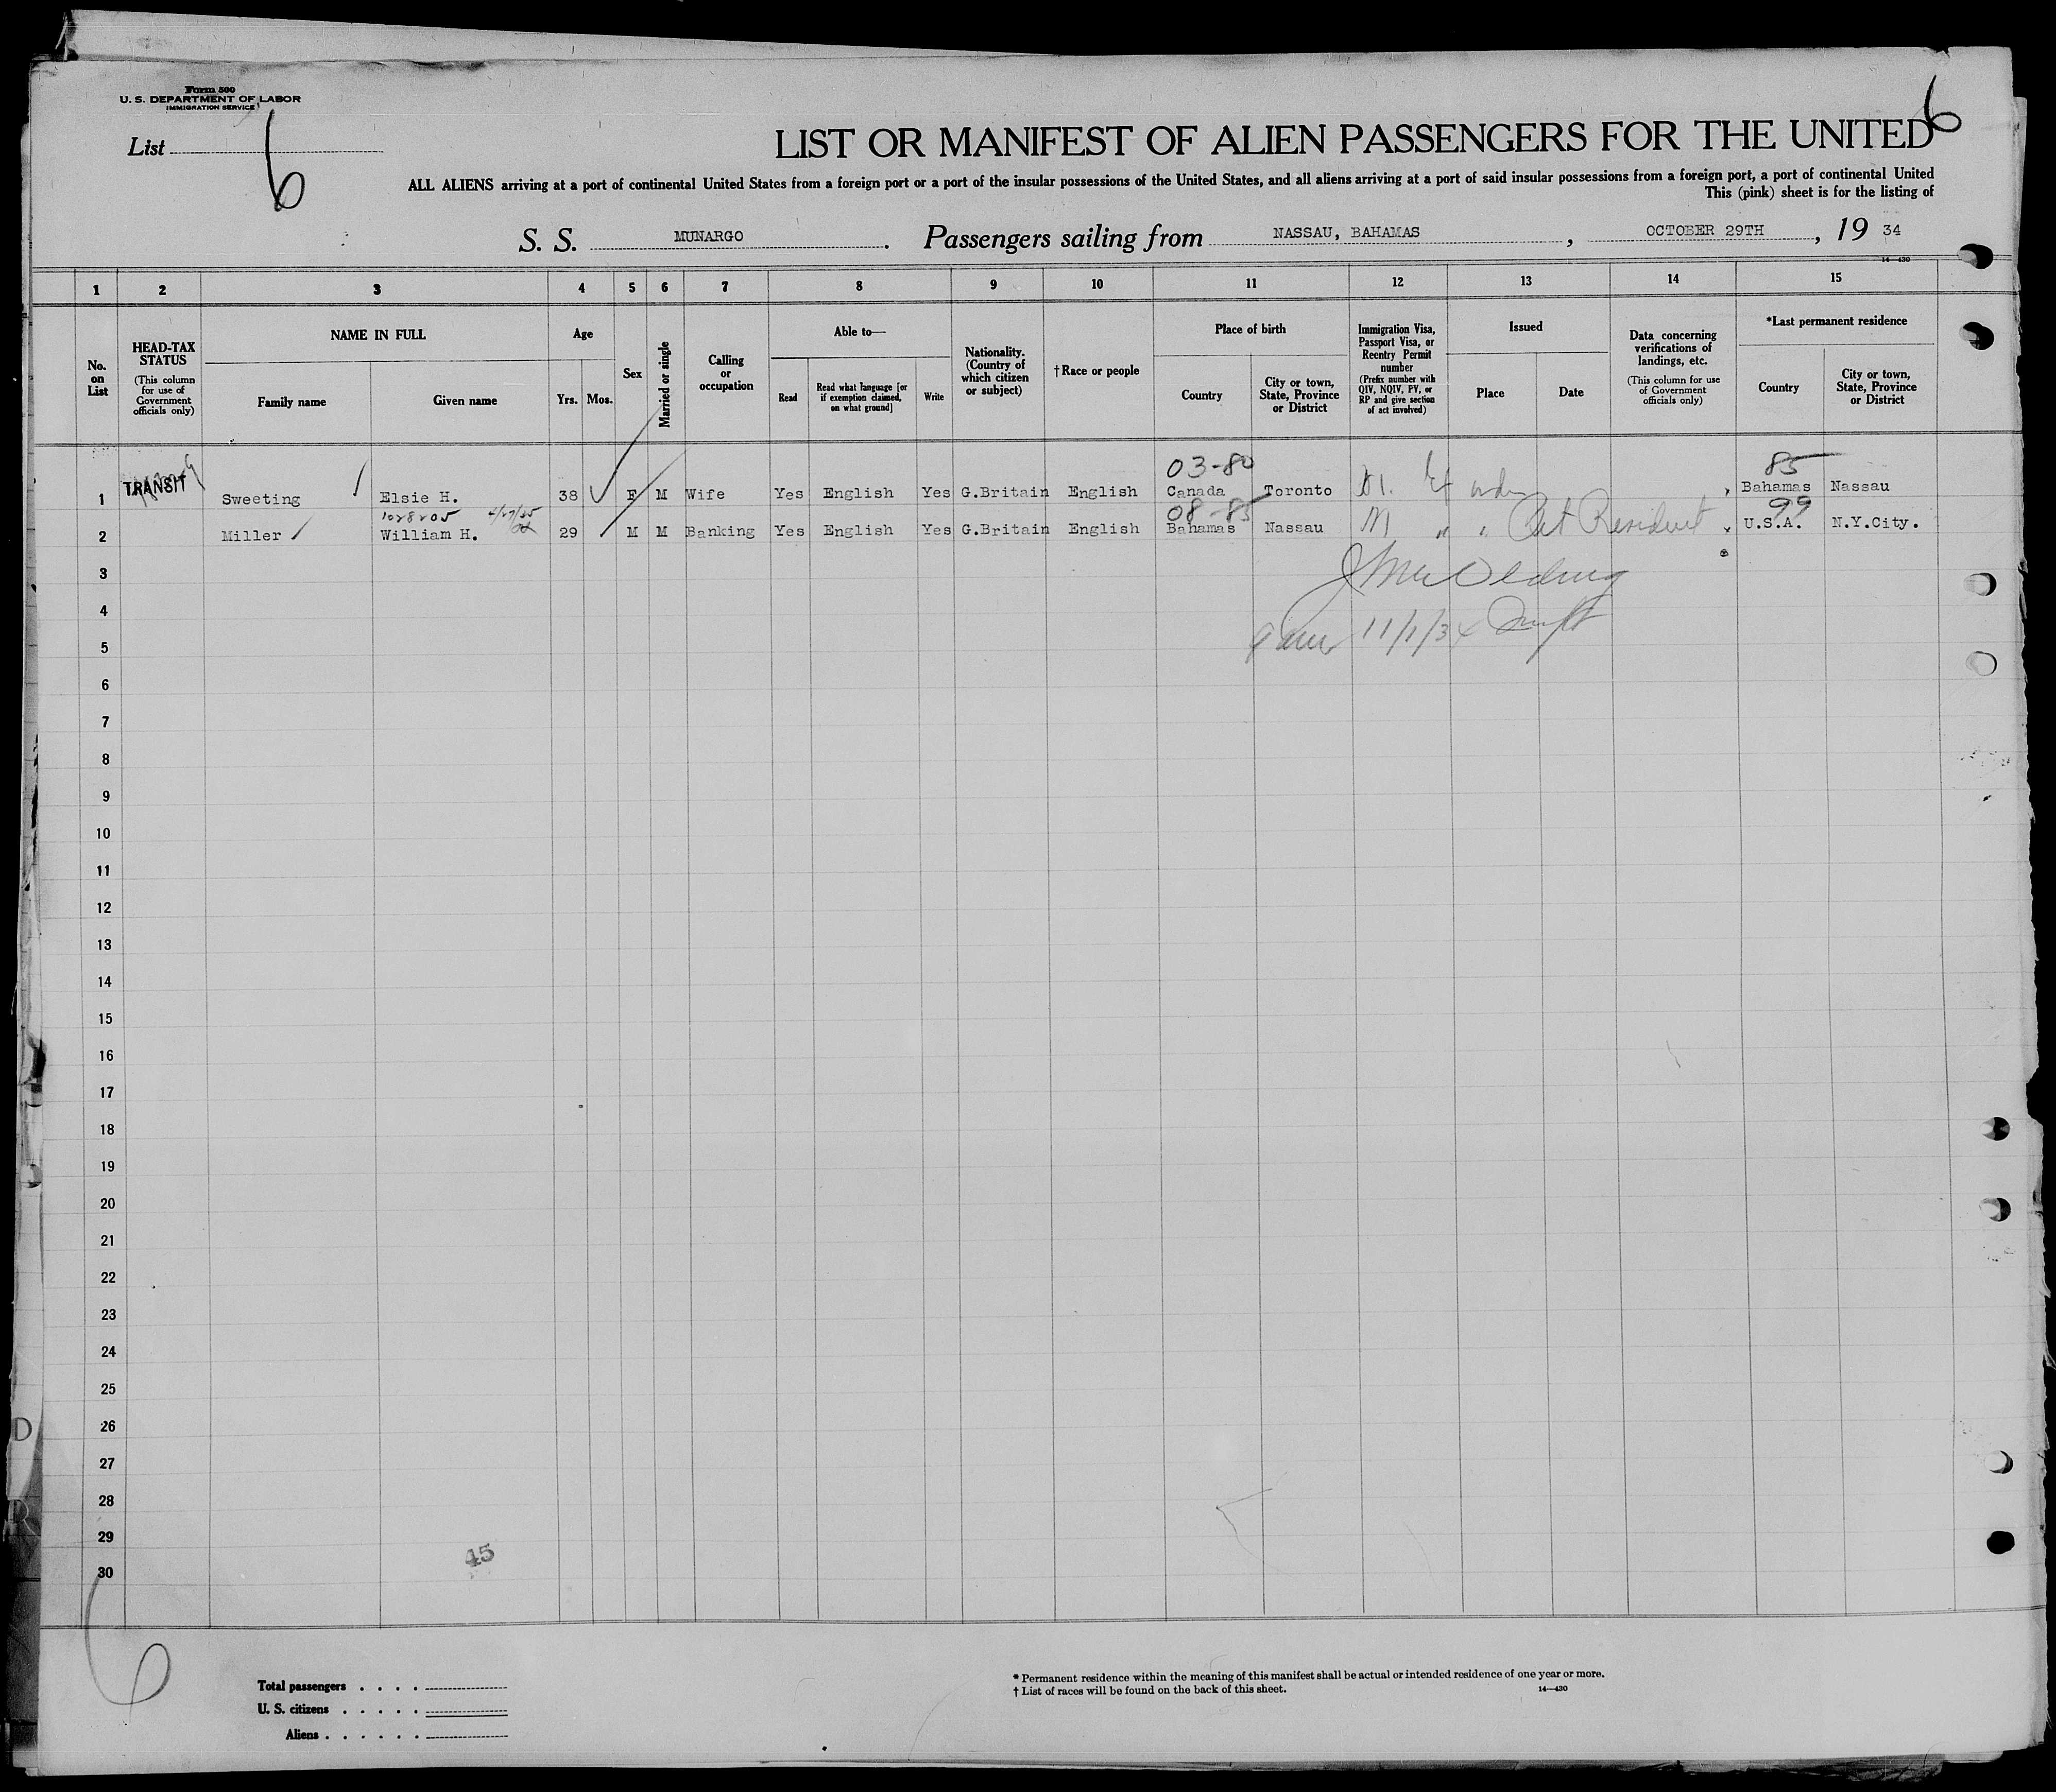 Form 500
U. S. DEPARTMENT OF LABOR
IMMIGRATION SERVICE
List 6
6
LIST OR MANIFEST OF ALIEN PASSENGERS FOR THE UNITED
ALL ALIENS arriving at a port of continental United States from a foreign port or a port of the insular possessions of the United States, and all aliens arriving at a port of said insular possessions from a foreign port, a port of continental United
This (pink) sheet is for the listing of
S. S. MUNARGO. Passengers sailing from NASSAU, BAHAMAS, OCTOBER 29TH, 19 34
14-430
1 2 3 4 5 6 7 8 9 10 11 12 13 14 15
No. on List
HEAD-TAX STATUS (This column for use of Government officials only)
NAME IN FULL
Family name
Given name
Age
Yrs. Mos.
Sex
Married or single
Calling or occupation
Able to—
Read
Read what language [or if exemption claimed, on what ground]
Write
Nationality. (Country of which citizen or subject)
†Race or people
Place of birth
Country
City or town, State, Province or District
Immigration Visa, Passport Visa, or Reentry Permit number (Prefix number with QIV, NQIV, PV, or RP and give section of act involved)
Issued
Place
Date
Data concerning verifications of landings, etc. (This column for use of Government officials only)
*Last permanent residence
Country
City or town, State, Province or District
03-80 85
1 TRANSIT Sweeting Elsie H. 38 F M Wife Yes English Yes G.Britain English Canada Toronto Bahamas Nassau
1028205 4/27/35 08-85 99
2 Miller William H. 29 M M Banking Yes English Yes G.Britain English Bahamas Nassau M " " Resident U.S.A. N.Y.City.
3
4
11/1/34
5
6
7
8
9
10
11
12
13
14
15
16
17
18
19
20
21
22
23
24
25
26
27
28
29
45
30
6
Total passengers
U. S. citizens
Aliens
* Permanent residence within the meaning of this manifest shall be actual or intended residence of one year or more.
† List of races will be found on the back of this sheet.
14-430